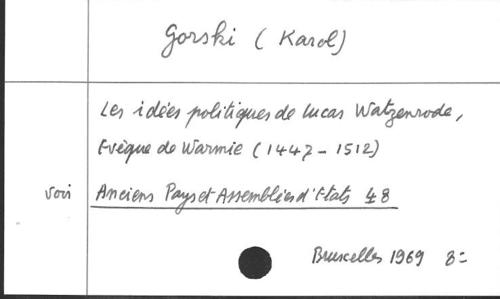 Gorski (Karol)
Les idées politiques de Lucas Watzenrode,
Evêque de Warmie (1447-1512)
voir Anciens Pays et Assemblées d'Etats 48
Bruxelles 1969 8=